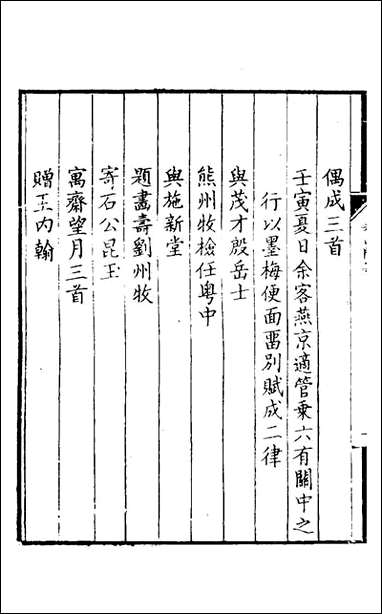 偶成三首
壬寅夏日余客燕京適管乘六有關中之
行以墨梅便面畱別賦成二律
與茂才殷岳士
熊州牧檢任粤中
與施新堂
題畫壽劉州牧
寄石公昆玉
寓齋望月三首
贈王內翰